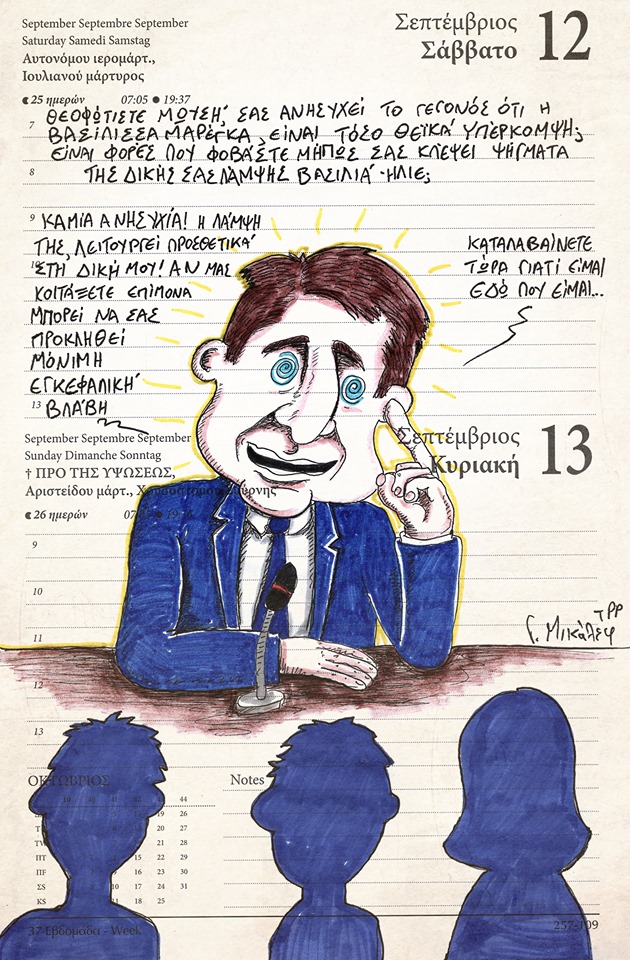 September Septembre September
Saturday Samedi Samstag
Αυτονόμου ιερομάρτ.,
Ιουλιανού μάρτυρος
Σεπτέμβριος
Σάββατο
12
25 ημερών 07:05 ● 19:37
7
ΘΕΟΦΩΤΙΣΤΕ ΜΩΥΣΗ, ΣΑΣ ΑΝΗΣΥΧΕΙ ΤΟ ΓΕΓΟΝΟΣ ΌΤΙ Η
ΒΑΣΙΛΙΣΣΑ ΜΑΡΕΓΚΑ, ΕΙΝΑΙ ΤΌΣΟ ΘΕΪΚΆ ΥΠΈΡΚΟΜΨΗ;
ΕΙΝΑΙ ΦΟΡΕΣ ΠΟΥ ΦΟΒΆΣΤΕ ΜΉΠΩΣ ΣΑΣ ΚΛΕΨΕΙ ΨΗΓΜΑΤΑ
8
ΤΗΣ ΔΙΚΗΣ ΣΑΣ ΛΑΜΨΗΣ ΒΑΣΙΛΙΆ-ΗΛΙΕ;
9
ΚΑΜΙΑ ΑΝΗΣΥΧΙΑ! Η ΛΆΜΨΗ
ΤΗΣ, ΛΕΙΤΟΥΡΓΕΙ ΠΡΟΣΘΕΤΙΚΆ
10
ΣΤΗ ΔΙΚΉ ΜΟΥ! ΑΝ ΜΑΣ
ΚΟΙΤΆΞΕΤΕ ΕΠΙΜΟΝΑ
ΜΠΟΡΕΙ ΝΑ ΣΑΣ
ΠΡΟΚΛΗΘΕΙ
ΜΌΝΙΜΗ
ΕΓΚΕΦΑΛΙΚΉ
13
ΒΛΆΒΗ
ΚΑΤΑΛΑΒΑΊΝΕΤΕ
ΤΏΡΑ ΓΙΑΤΙ ΕΙΜΑΙ
ΕΔΏ ΠΟΥ ΕΙΜΑΙ...
September Septembre September
Sunday Dimanche Sonntag
† ΠΡΟ ΤΗΣ ΥΨΩΣΕΩΣ,
Αριστείδου μάρτ.,
Σεπτέμβριος
Κυριακή
13
26 ημερών
9
10
11
12
13
Γ. Μικάλεφ
ΟΚΤΩΒΡΙΟΣ
Notes
44
19 26
20 27
21 28
15 22 29
16 23 30
ΣΣ 10 17 24 31
ΚΣ 11 18 25
37 Εβδομάδα - Week
257-109